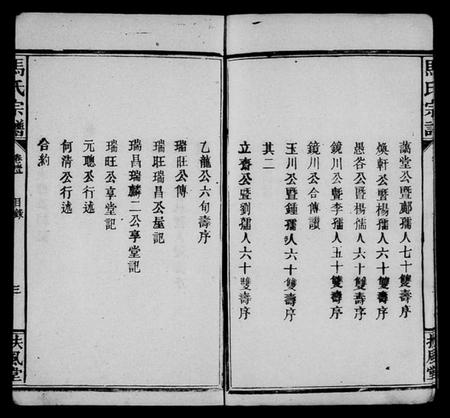 馬氏宗譜
扶風堂
藹堂公暨鄭孺人七十雙壽序
煥軒公暨楊孺人六十雙壽序
愚谷公暨楊孺人六十雙壽序
鏡川公暨李孺人五十雙壽序
鏡川公合傳讚
玉川公暨鍾孺人六十雙壽序
其二
立齋公暨劉孺人六十雙壽序
乙龍公六旬壽序
瑞旺公傳
瑞旺瑞昌公屋記
瑞昌瑞麟二公享堂記
瑞旺公享堂記
元聰公行述
何清公行述
合約
馬氏宗譜
目錄
三
扶風堂